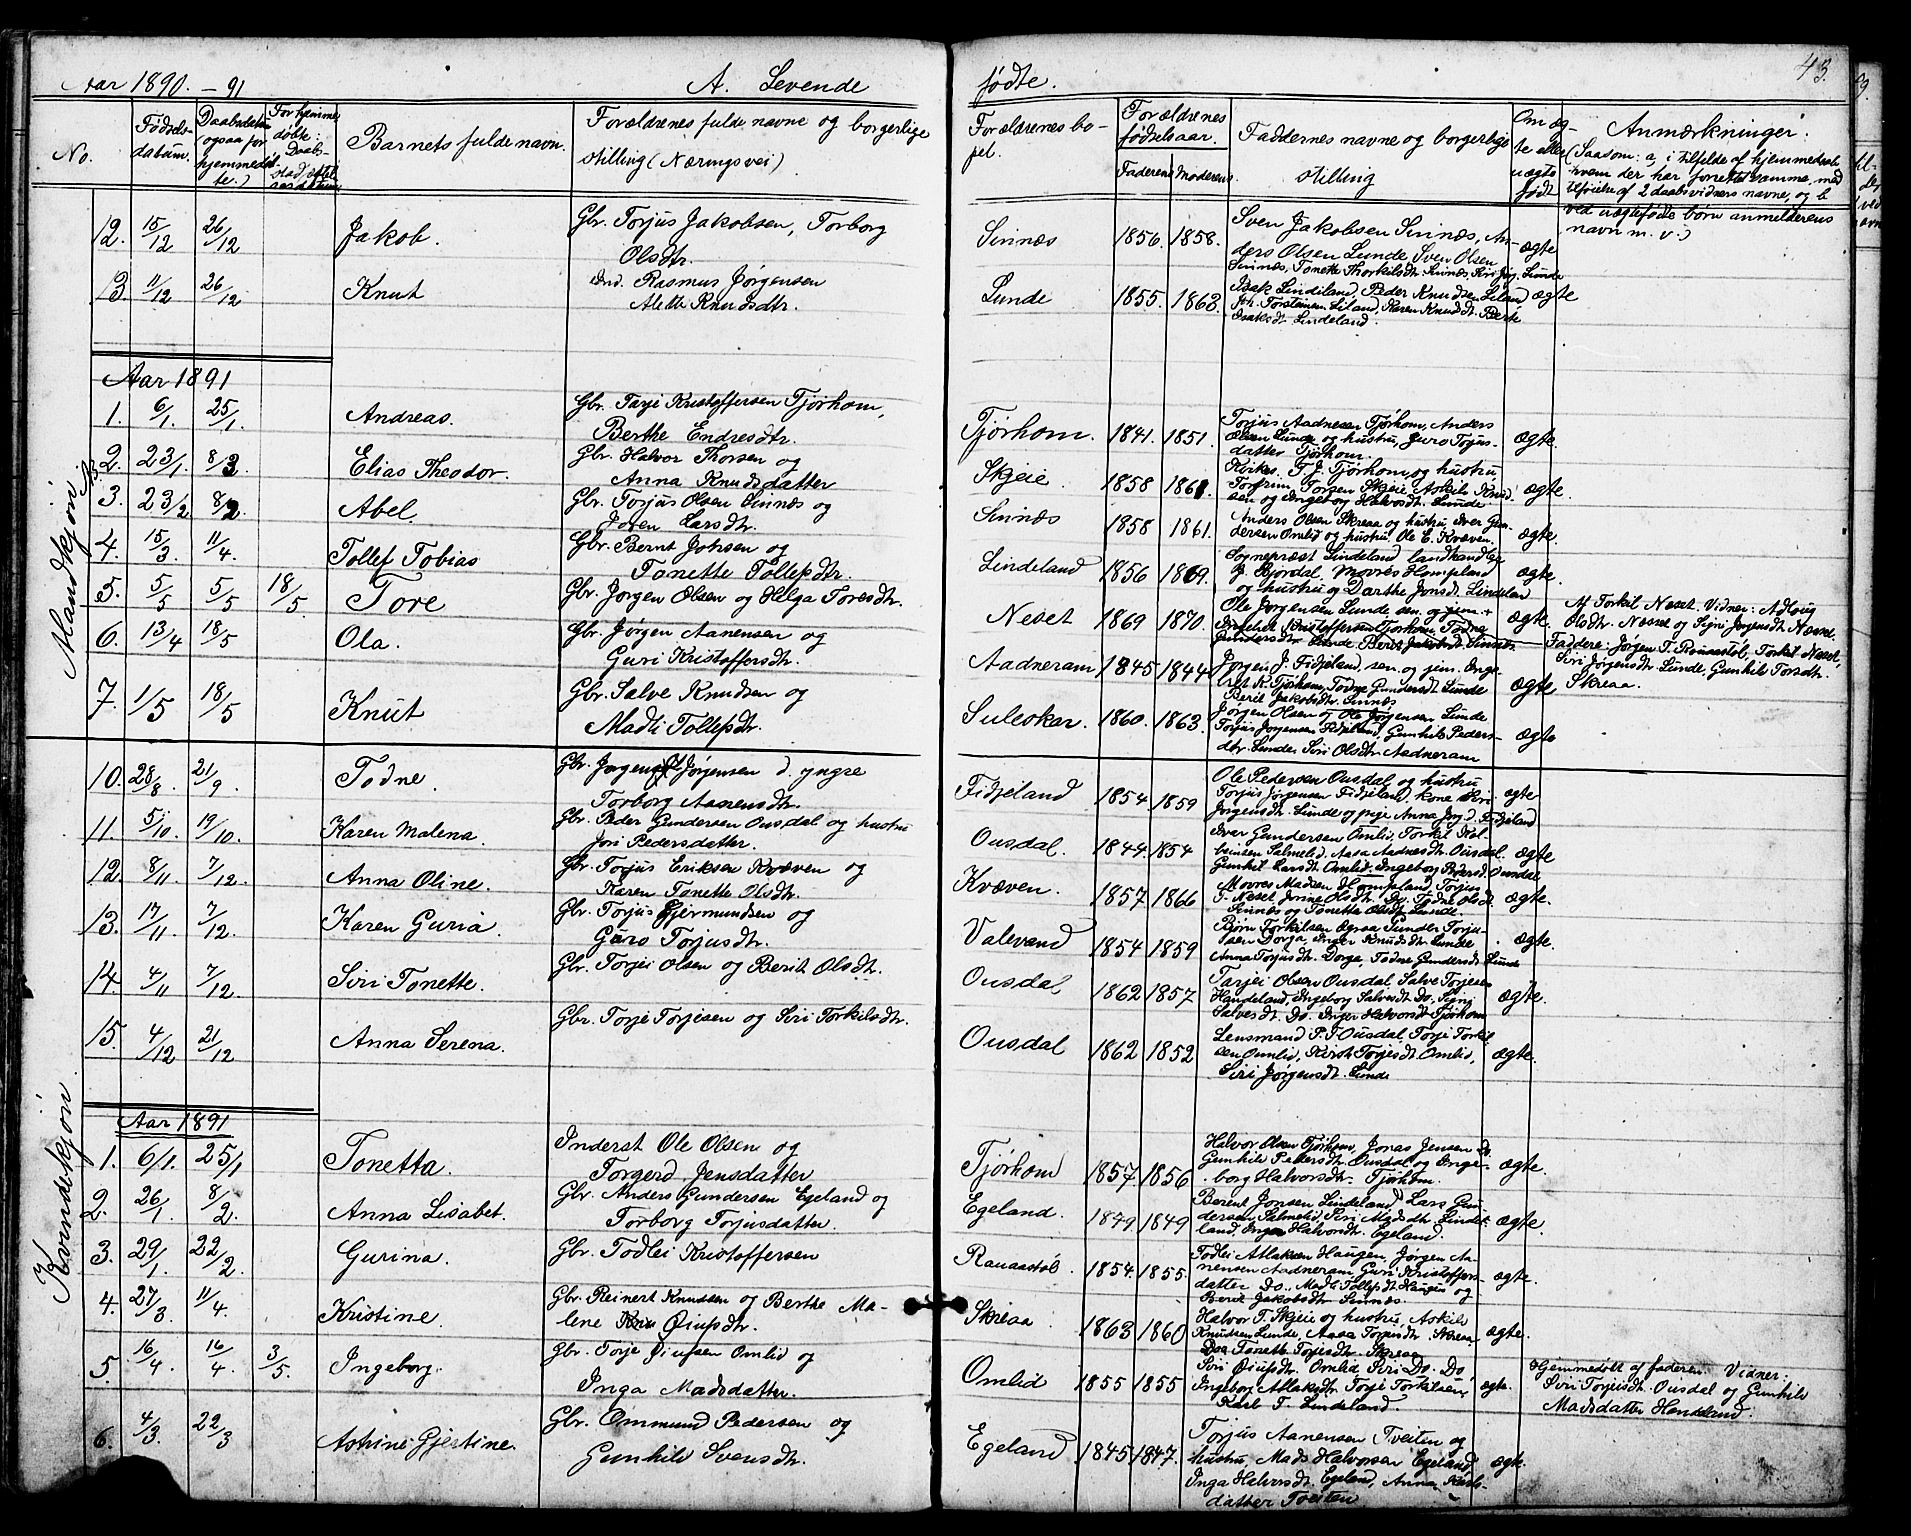 Aar 1890. - 91 A. Levende fødte. 43.
No. Fødsels-datum. Daabsdatum (ogsaa for hjemmedøbte.) For hjemmedøbte: Daabs Barnets fulde navn. Forældrenes fulde navne og borgerlige stilling (Næringsvei) Forældrenes bopel. Forældrenes fødselsaar. Faderens Moderens Faddernes navne og borgerlige stilling Om ægte eller uægte født Anmærkninger.
(Saasom: a, i tilfælde af hjemmedaab
hvem der har forrettet samme, med
tilføielse af 2 daabsvidners navne, og b
ved uægtefødte børn anmelderens
navn m. v.)
Mandkjøn
12. 15/12 26/12 Jakob. Gbr. Torjus Jakobsen, Torborg
Olsdtr. Sinnes 1856. 1858. ægte
Sven Jakobsen Sinnes, An-
ders Olsen Lunde Sven Olsen
Sinnes, Tonette Thorkilsdt. Sinnes, Siri Jørg. Lunde
13. 11/12 26/12 Knut Ind. Rasmus Jørgensen
Alette Knudsdtr. Lunde 1855. 1863. ægte
Isak Lindeland, Peder Knudsen Liland
Joh. Torstensen Liland, Karen Knudsdt. Berte
Isaksdt. Lindeland.
Aar 1891
1. 6/1. 25/1. Andreas. Gbr. Tarje Kristoffersen Tjørhom,
Berthe Endresdtr. Tjørhom. 1841. 1851. ægte.
Torjus Aadnesen Tjørhom, Anders
Olsen Lunde og hustru, Guro Torjus-
datter Tjørhom.
2. 23/1. 8/3. Elias Theodor. Gbr. Halvor Thorsen og
Anna Knudsdatter Skjeie. 1858 1861. ægte.
T. J. Tjørhom og hustru
Torgrim Torsen Skjeie Askild Knud-
sen og Ingeborg Halvorsdt. Lunde
3. 23/2. 8/2. Abel. Gbr. Torjus Olsen Sinnes og
Joren Larsdtr. Sinnes 1858 1861. ægte.
Anders Olsen Skreaa og hustru, Iver Gun-
dersen Omlid og hustru. Ole E. Kvæven.
4. 15/3. 11/4. Tollef Tobias Gbr. Bernt Johsen og
Tonette Tollefsdtr. Lindeland 1856 1869. ægte.
Sogneprest Lindeland landhandler
J. Bjordal, Movres Hompland
og hustru og Darthe Jonsdt. Lindeland
5. 5/5 5/5 18/5 Tore Gbr. Jørgen Olsen og Helga Toresdtr. Neset 1869 1870. ægte.
Ole Jørgensen Lunde sen. og jun.
Ingebret Kristoffersen Tjørhom, Todne
Gundersdtr. Lunde Berit Jakobsdt. Sinnes
Af Torkil Neset. Vidner: Adloug
Olsdtr. Næset og Signi Jørgensdt. Næset.
Faddere: Jørgen T. Rauaastøl, Torkil Neset,
Siri Jørgensdt. Lunde, Gunhild Torsdt.
Skreaa.
6. 13/4 18/5 Ola. Gbr. Jørgen Aanensen og
Guri Kristoffersdtr. Aadneram 1845 1844 ægte
Jørgen J. Fidjeland, sen. og jun. Inge-
bret K. Tjørhom, Todne Gundersdt. Lunde
Berit Jakobsdtr. Sinnes
7. 1/5 18/5 Knut Gbr. Salve Knudsen og
Madli Tollefsdtr. Suleskar. 1860. 1863. ægte
Jørgen Olsen og Ole Jørgensen Lunde
Torjus Jørgensen Fidjeland, Gunhild Peders-
dtr. Lunde, Siri Olsdtr. Aadneram
Kvindekjøn
10. 28/8 21/9. Todne. Gbr. Jørgen Jørgensen d. yngre
Torborg Aanensdtr. Fidjeland 1854 1859 ægte
Ole Pedersen Ousdal og hustru
Torjus Jørgensen Fidjeland, kone Siri
Jørgensdt. Lunde og pige Anna Jørg.d. Fidjeland
11. 5/10. 19/10. Karen Malena. Gbr. Peder Gundersen Ousdal og hustru
Jori Pedersdatter. Ousdal. 1844. 1854 ægte
Iver Gundersen Omlid, Torkil Kol-
beinsen Salmelid. Aasa Aadnesdtr. Ousdal.
Gunhil Larsdt. Omlid. Ingeborg Pedersd. Ousdal
12. 8/11. 7/12. Anna Oline. Gbr. Torjus Eriksen Kvæven og
Karen Tonette Olsdtr. Kvæven. 1857 1866 ægte.
Movres Madsen Hompland, Torjus
T. Neset Jorine Olsdt. Do. Todne Olsd.
Sinnes og Tonetta Olsdt. Lunde.
13. 17/11. 7/12. Karen Guria. Gbr. Torjus Gjermundsen og
Guro Torjusdtr. Valevand 1854 1859 ægte.
Bjørn Torkilsen Gunder Torju-
sen Dorga, Inger Knudsdt. Lunde
Anna Torjusdtr. Dorga, Todne Gundersdt. Lunde
14. 4/11 7/12. Siri Tonette. Gbr. Torjei Olsen og Berit Olsdtr. Ousdal 1862 1857 ægte.
Tarjei Olsen Ousdal, Salve Torjesen
Handeland, Ingeborg Salvesdt. Do. Signi
Salvesdt. Do. Inger Halvorsdt. Tjørhom
15. 4/12 21/12 Anna Serena. Gbr. Torje Torjesen og Siri Torkilsdtr. Ousdal 1862 1852 ægte.
Lensmand P. T. Ousdal, Torje Torkil
sen Omlid, Torjesdt. Omlid,
Siri Jørgensdt. Lunde
Aar 1891
1. 6/1. 25/1 Tonetta. Inderst Ole Olsen og
Torgerd Jensdatter Tjørhom 1857. 1856 ægte.
Halvor Olsen Tjørhom, Jonas Jensen Do.
Gunhild Pedersdt. Ousdal og Inge-
borg Halvorsdtr. Tjørhom.
2. 26/1. 8/2. Anna Lisabet. Gbr. Anders Gundersen Egeland og
Torborg Torjusdatter. Egeland. 1849. 1849 ægte.
Berent Jonsen Lindeland, Lars Gun-
dersen Salmelid Siri Madsdt. Linde-
land, Inger Halvorsdt. Egeland.
3. 29/1. 22/2. Gurina. Gbr. Todlei Kristoffersen Rauaastøl. 1854. 1855. ægte.
Todlei Atlaksen Haugen, Jørgen Aa-
nensen Aadneram, Guri Kristoffers-
datter Do. Madli Tollefsdt. Haugen og
Berit Jakobsdtr. Sinnes.
4. 27/3. 11/4. Kristine. Gbr. Reinert Knudsen og Berthe Ma-
lene Øiufsdtr. Skreaa 1863 1860 ægte.
Halvor T. Skjeie og hustru, Askild
Knudsen Lunde, Aasa Torjusdt. Skreaa
Tonette Torjusdt. Skreaa
5. 16/4. 16/4. 3/5. Ingeborg. Gbr. Torje Øiufsen Omlid og
Inga Madsdatter. Omlid 1855 1855 ægte.
Siri Øiufsdt. Omlid, Siri Do. Do.
Ingeborg Atlaksdtr. Torje Torkilsen,
Karl T. Lindeland.
Hjemmedøbt af faderen. Vidner:
Siri Torjusdt. Ousdal og Gunhild
Madsdatter Handeland.
6. 4/3. 22/3 Astrine Gjertine. Gbr. Ommund Pedersen og
Gunhild Svensdtr. Egeland 1845 1847. ægte.
Torjus Aanensen Tveiten og
hustru, Mads Halvorsen Egeland,
Inga Halvorsdt. Egeland, Anna Karls-
datter Tveiten.